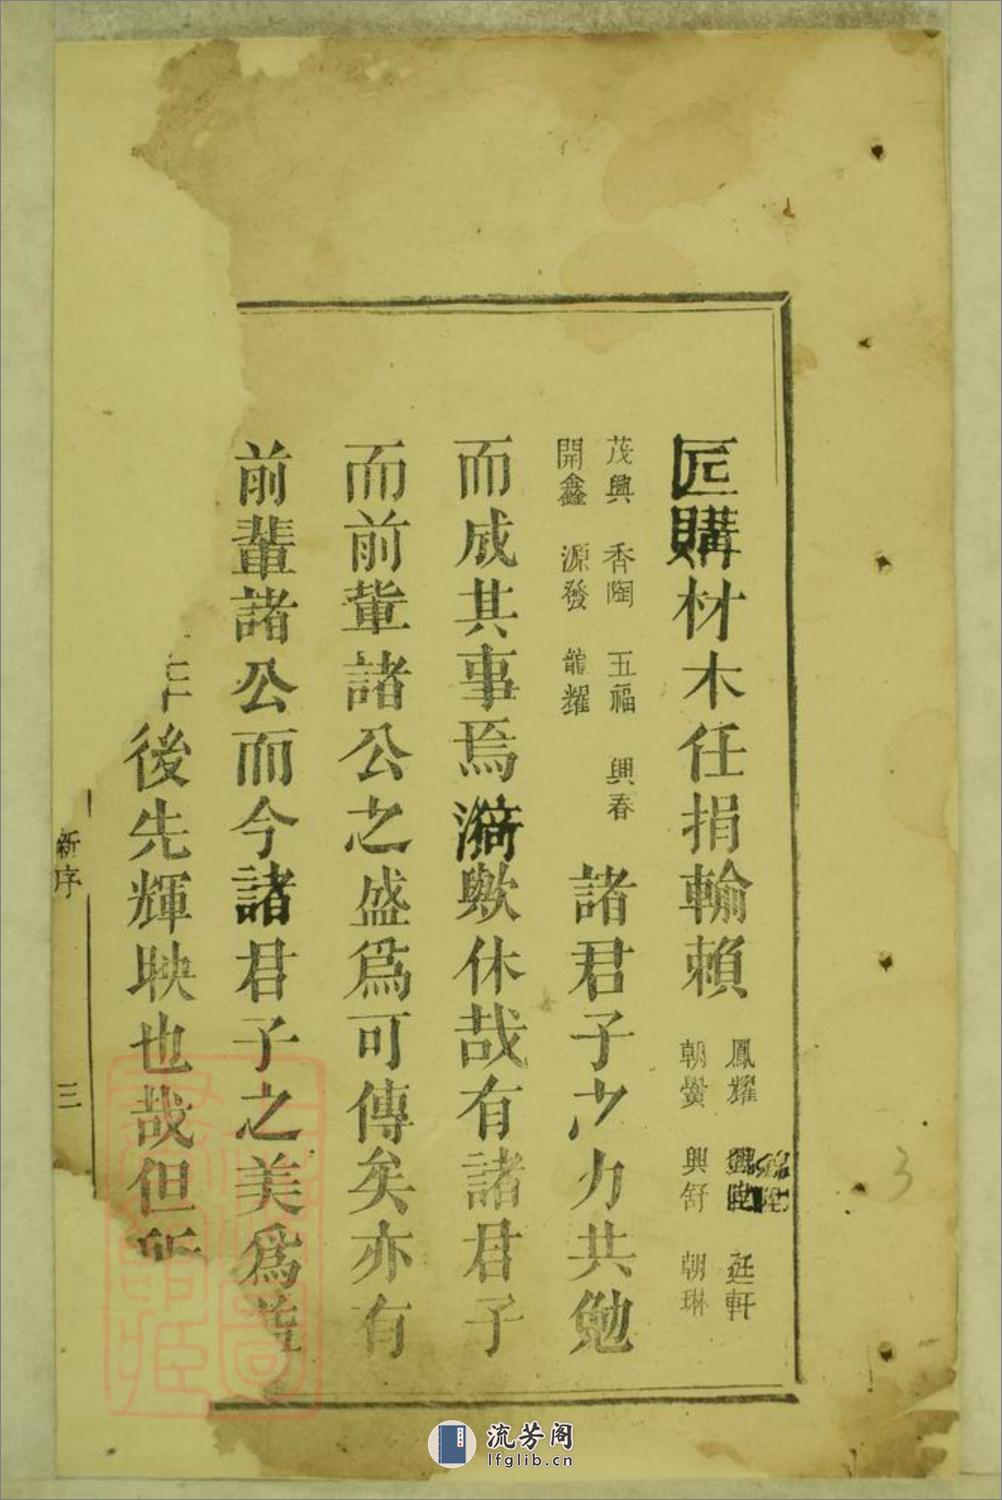 匠購材木任捐輸賴
鳳耀 興 廷軒
朝黌 興舒 朝琳
茂興 香陶 五福 興春
開鑫 源發 龍耀
諸君子力共勉
而成其事焉漪歟休哉有諸君子
而前輩諸公之盛爲可傳矣亦有
前輩諸公而今諸君子之美爲
後先輝映也哉但
新序
三
3
流芳阁
lfglib.cn